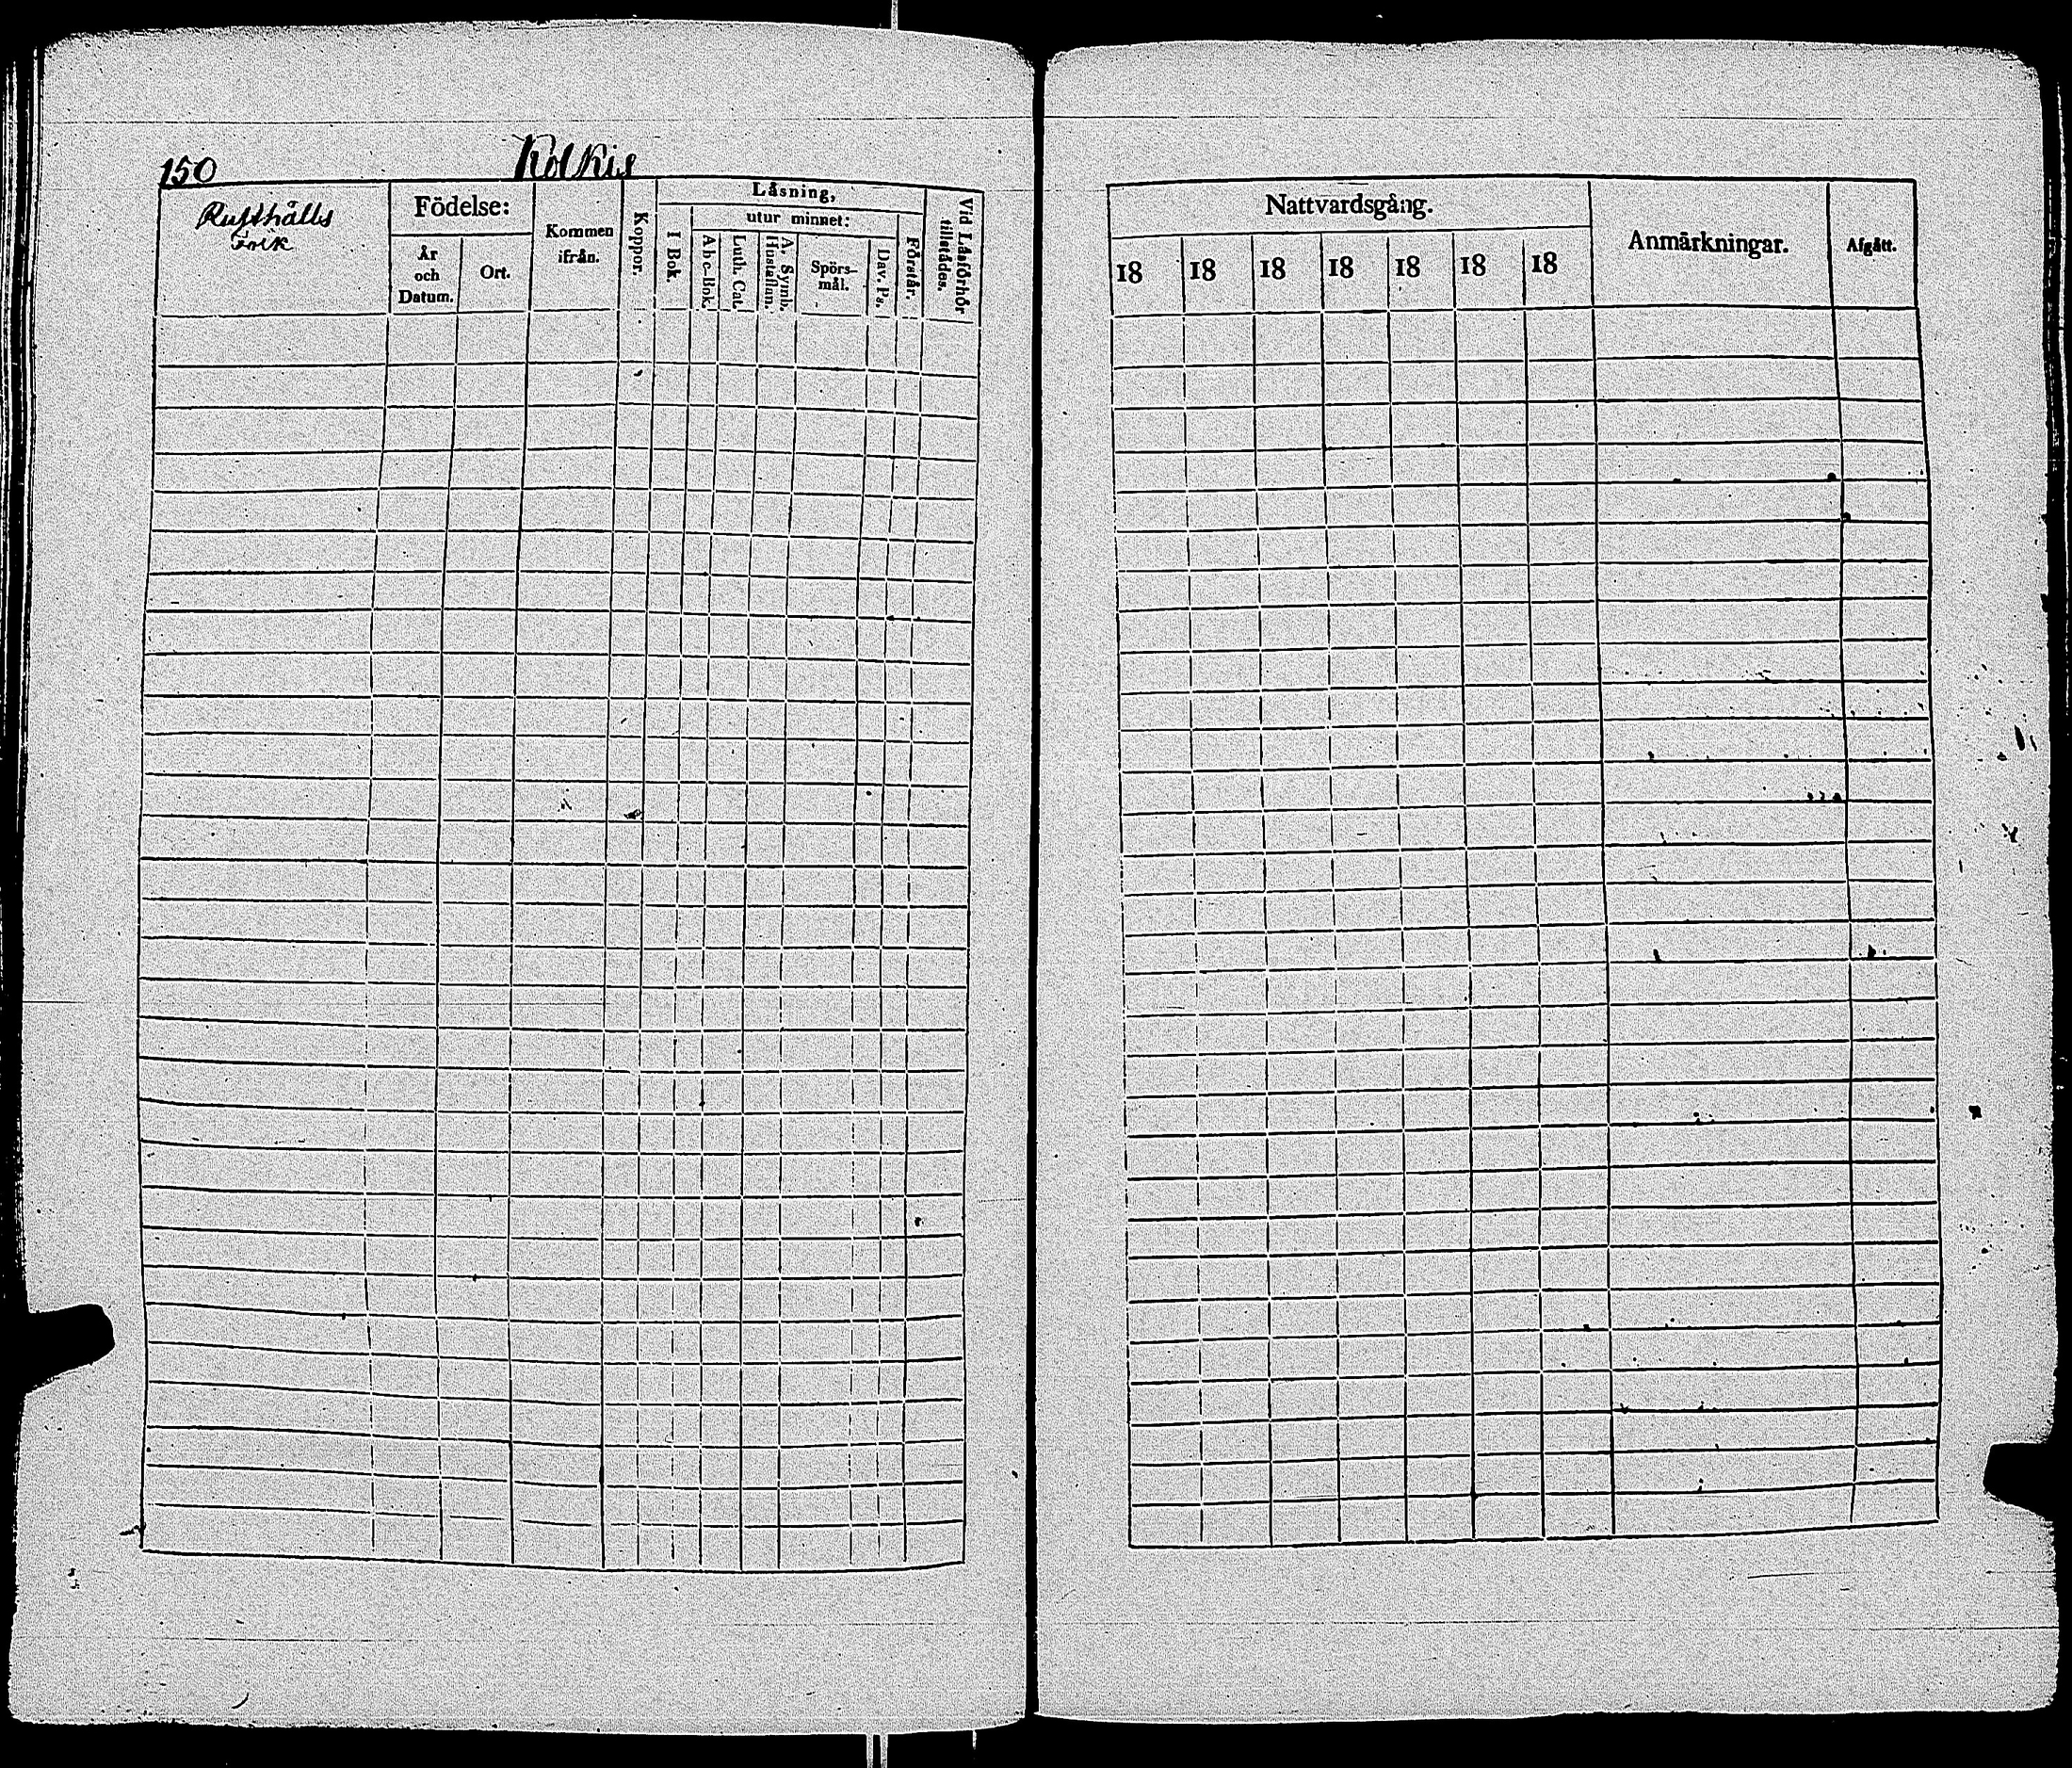 150
Kolkis
Rusthålls
Folk
Födelse:
År
och
Datum.
Ort.
Kommen
ifrån.
Koppor.
Låsning,
I Bok.
utur minnet:
Abc-Bok.
Luth. Cat.
A. Symb.
Hustaflan.
Spörs-
mål.
Dav. Ps.
Förstår.
Vid Låsförhör
tillstådes.
Nattvardsgång.
18 18 18 18 18 18 18
Anmårkningar.
Afgått.